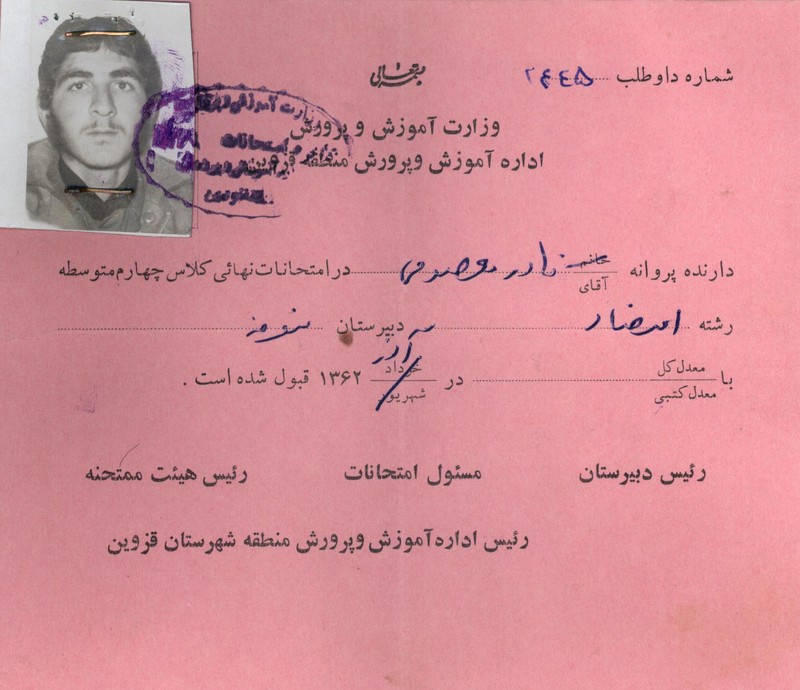 بسمه تعالی
شماره داوطلب ۲۴۴۵
وزارت آموزش و پرورش
اداره آموزش وپرورش منطقه قزوین
دارنده پروانه خانم آقای نادر معصومی در امتحانات نهائی کلاس چهارم متوسطه
رشته دبیرستان
با معدل کل معدل کتبی در خرداد شهریور آذر ۱۳۶۲ قبول شده است .
رئیس دبیرستان مسئول امتحانات رئیس هیئت ممتحنه
رئیس اداره آموزش وپرورش منطقه شهرستان قزوین